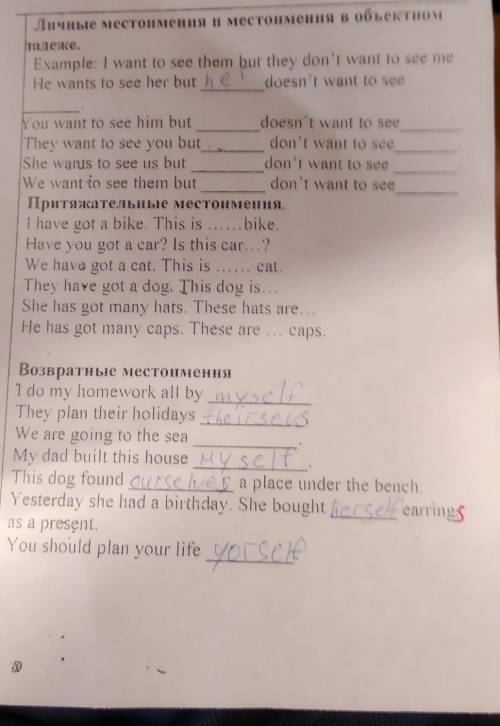 Личные местоимения и местоимения в объектном
падеже.
Example: I want to see them but they don't want to see me
He wants to see her but he doesn't want to see
______.
You want to see him but ______ doesn't want to see______
They want to see you but______ don't want to see______
She wants to see us but ______ don't want to see ______
We want to see them but ______ don't want to see______
Притяжательные местоимения.
I have got a bike. This is ......bike.
Have you got a car? Is this car...?
We have got a cat. This is ...... cat.
They have got a dog. This dog is...
She has got many hats. These hats are...
He has got many caps. These are ... caps.
Возвратные местоимения
I do my homework all by myself
They plan their holidays theirsels
We are going to the sea ______.
My dad built this house myself.
This dog found ourselves a place under the bench.
Yesterday she had a birthday. She bought herself earrings
as a present.
You should plan your life yorself